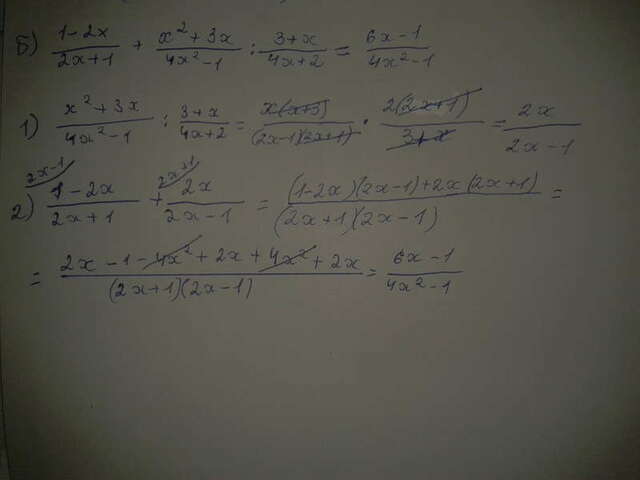 Б) (1-2x)/(2x+1) + (x²+3x)/(4x²-1) : (3+x)/(4x+2) = (6x-1)/(4x²-1)
1) (x²+3x)/(4x²-1) : (3+x)/(4x+2) = x(x+3)/((2x-1)(2x+1)) · 2(2x+1)/(3+x) = 2x/(2x-1)
2) ²ˣ⁻¹/ (1-2x)/(2x+1) + ²ˣ⁺¹/ 2x/(2x-1) = ((1-2x)(2x-1)+2x(2x+1))/((2x+1)(2x-1)) =
= (2x-1-4x²+2x+4x²+2x)/((2x+1)(2x-1)) = (6x-1)/(4x²-1)